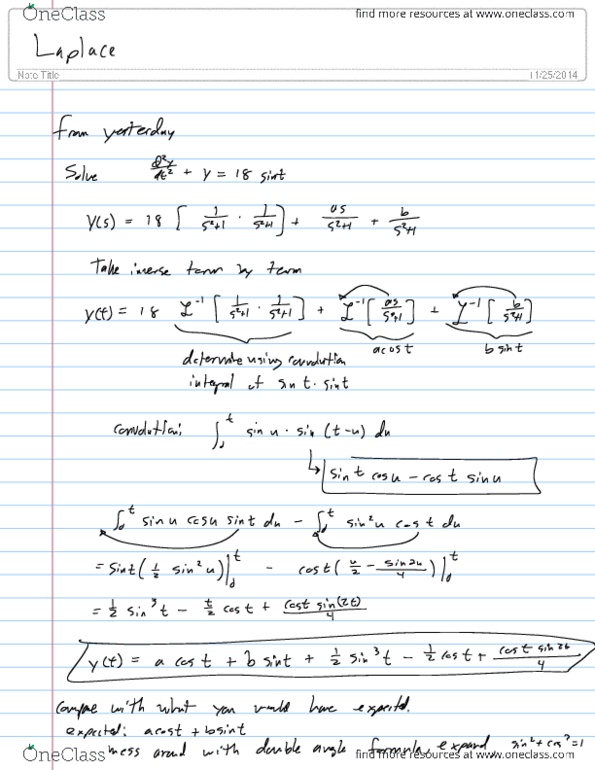 OneClass find more resources at www.oneclass.com
Laplace
Note Title 11/25/2014
from yesterday
Solve d²y/dt² + y = 18 sint
Y(s) = 18 [ 1/s²+1 · 1/s²+1 ] + as/s²+1 + b/s²+1
Take inverse term by term
y(t) = 18 ℒ⁻¹ [ 1/s²+1 · 1/s²+1 ] + ℒ⁻¹ [ as/s²+1 ] + ℒ⁻¹ [ b/s²+1 ]
a cos t b sin t
determine using convolution
integral of sin t · sin t
convolution: ∫₀ᵗ sin u · sin (t-u) du
sin t cos u - cos t sin u
∫₀ᵗ sin u cos u sin t du - ∫₀ᵗ sin² u cos t du
= sin t (½ sin² u)|₀ᵗ - cos t (u/2 - sin2u/4)|₀ᵗ
= ½ sin³ t - t/2 cos t + cos t sin(2t)/4
y(t) = a cos t + b sin t + ½ sin³ t - ½ cos t + cos t sin 2t/4
Compare with what you would have expected.
expected: a cos t + b sin t
mess around with double angle formula, expand sin² + cos² = 1
OneClass find more resources at www.oneclass.com